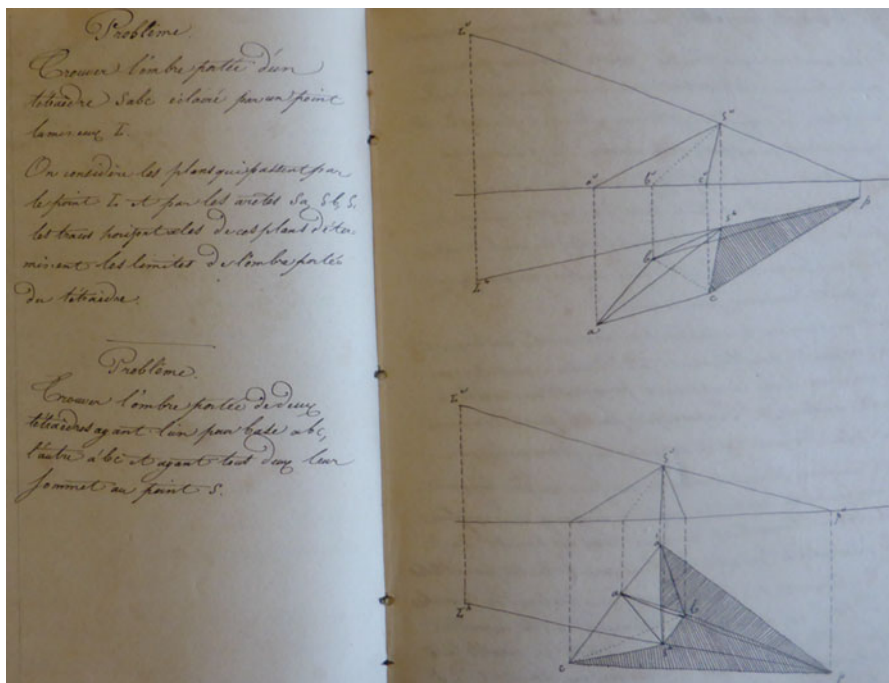 Problème.
Trouver l'ombre portée d'un
tétraèdre Sabc éclairé par un point
lumineux L.
On considère les plans qui passent par
le point L et par les arêtes Sa, Sb, S
les traces horizontales de ces plans déter-
minent les limites de l'ombre portée
du tétraèdre.
Problème.
Trouver l'ombre portée de deux
tétraèdres ayant l'un pour base abc,
l'autre a'bc et ayant tout deux leur
sommet au point S.
L"
S"
a" b" c"
p
S"
b
L"
c
a
L"
S"
p"
a
b
L"
S"
c